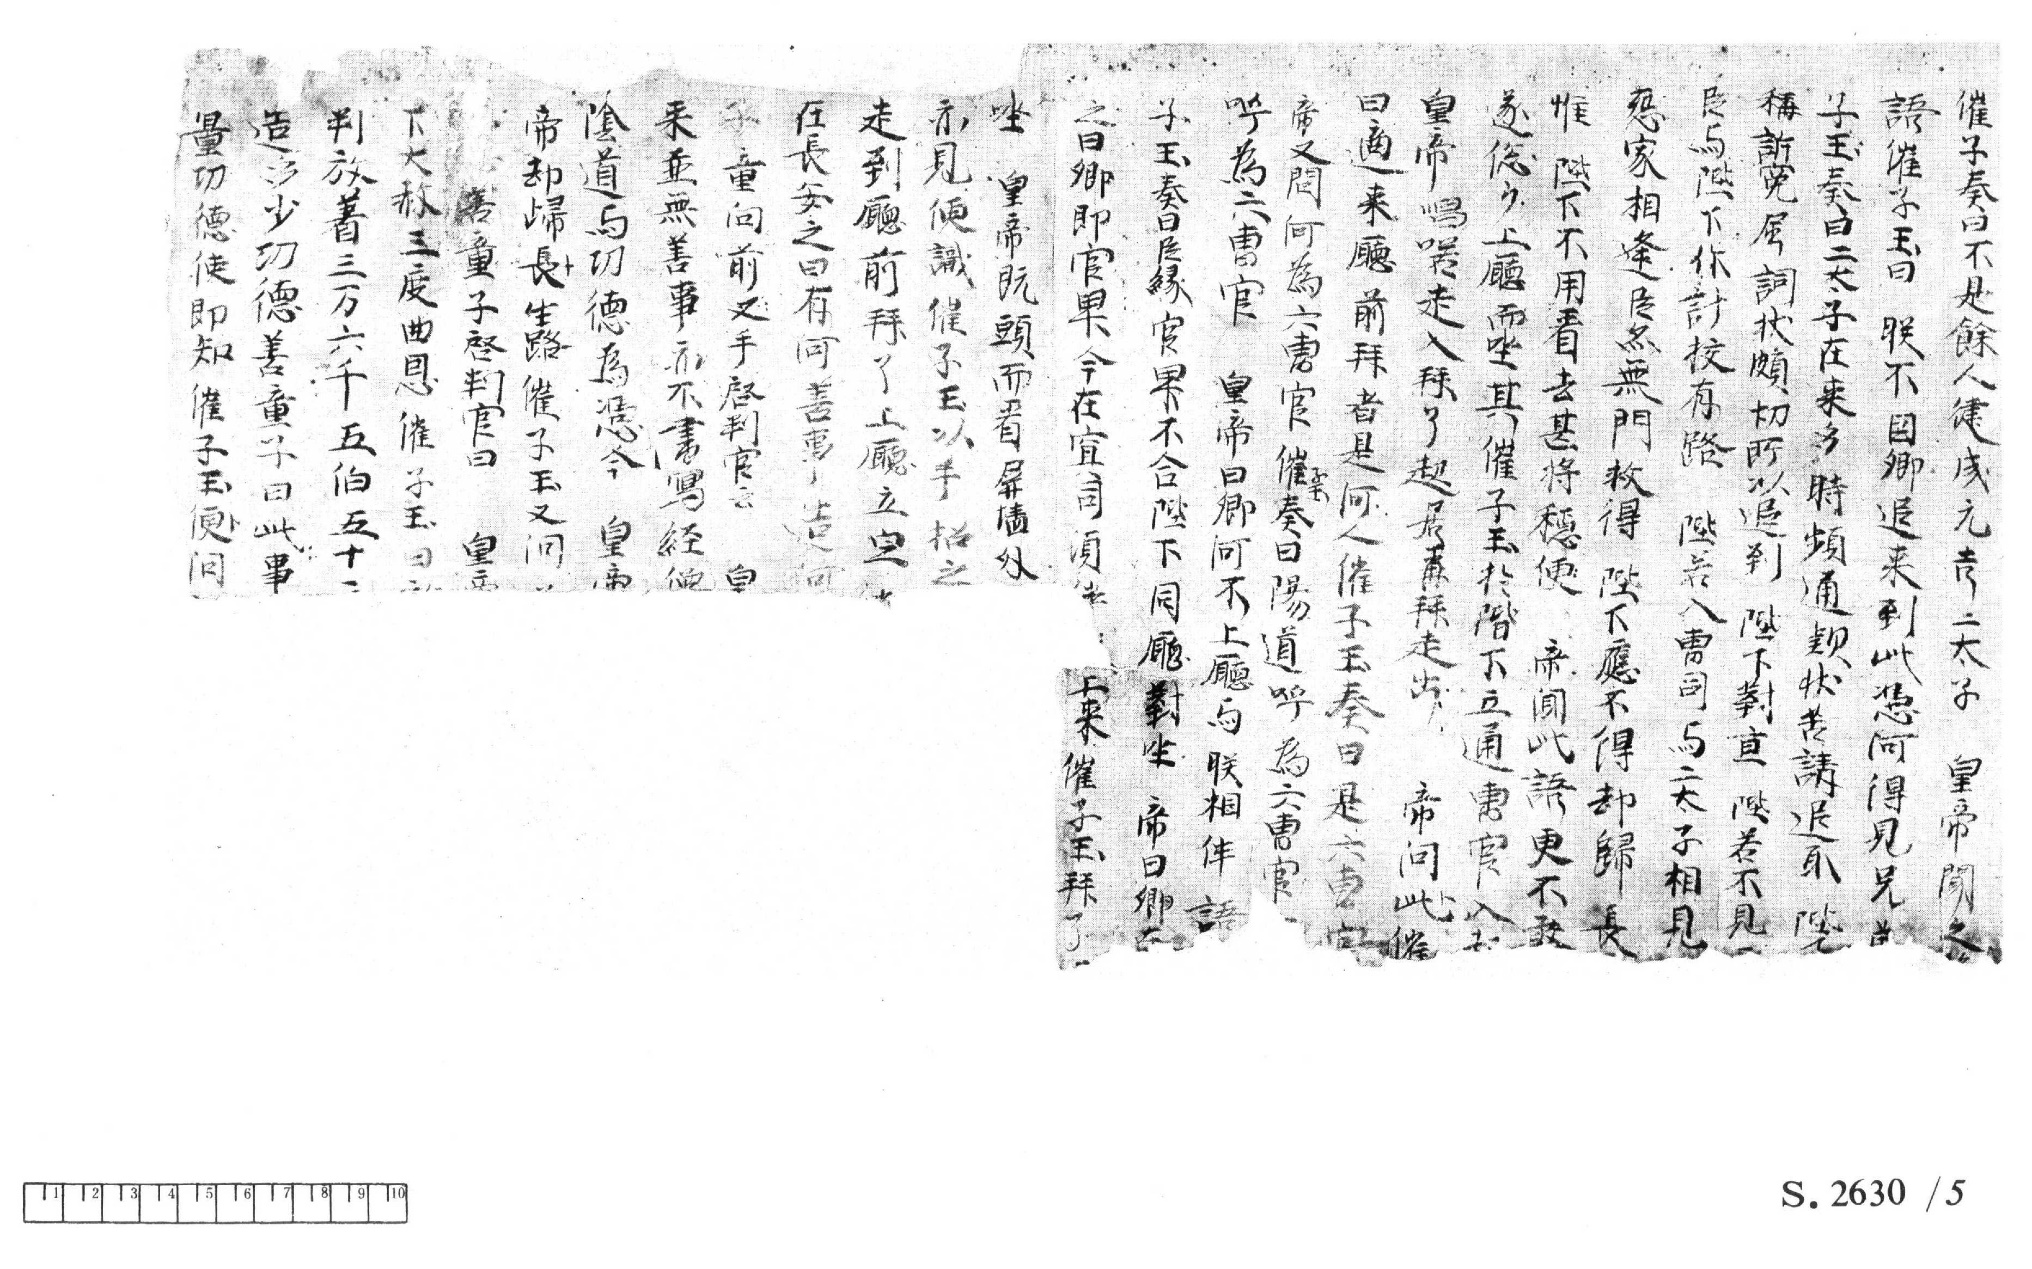 催子奏曰不是餘人建成元吉二太子　皇帝聞之
語催子玉曰　朕不因卿追来到此憑何得見兄
子玉奏曰二太子在来多時頻通款状苦請追取　陛
稱訴冤屈詞状頗切所以追到　陛下對直　陛若不見
臣与陛下作計校有路　陛若入曹司与二太子相見
怨家相逢臣亦無門救得　陛下應不得却歸　長
惟　陛下不用看去甚将穩便　帝聞此語更不敢
遂㤰少上廳而坐其催子玉於階下立通曹官入
皇帝唱喏走入拜了起居再拜走出　帝問此催
曰適来廳前拜者是何人催子玉奏曰是六曹官
帝又問何為六曹官催子玉奏曰陽道呼為六曹官
呼為六曹官　皇帝曰卿何不上廳与朕相伴語
子玉奏曰臣縁官卑不合陛下同廳對坐　帝曰卿
之曰卿即官卑今在宜司須　上来催子玉拜了
坐　皇帝既頭而看屏墻外
亦見便識催子玉以手招之
走到廳前拜了上廳立定
在長安之曰有何善事造何
子童向前叉手啓判官云　皇
来並無善事亦不書寫経
陰道与功德為憑今　皇帝
帝却歸長生路催子玉又問
善童子啓判官曰　皇
下大赦三度曲恩催子玉曰
判放著三万六千五伯五十
造多少功德善童子曰此事
量功德使即知催子玉便問
S. 2630 /5
1 2 3 4 5 6 7 8 9 10